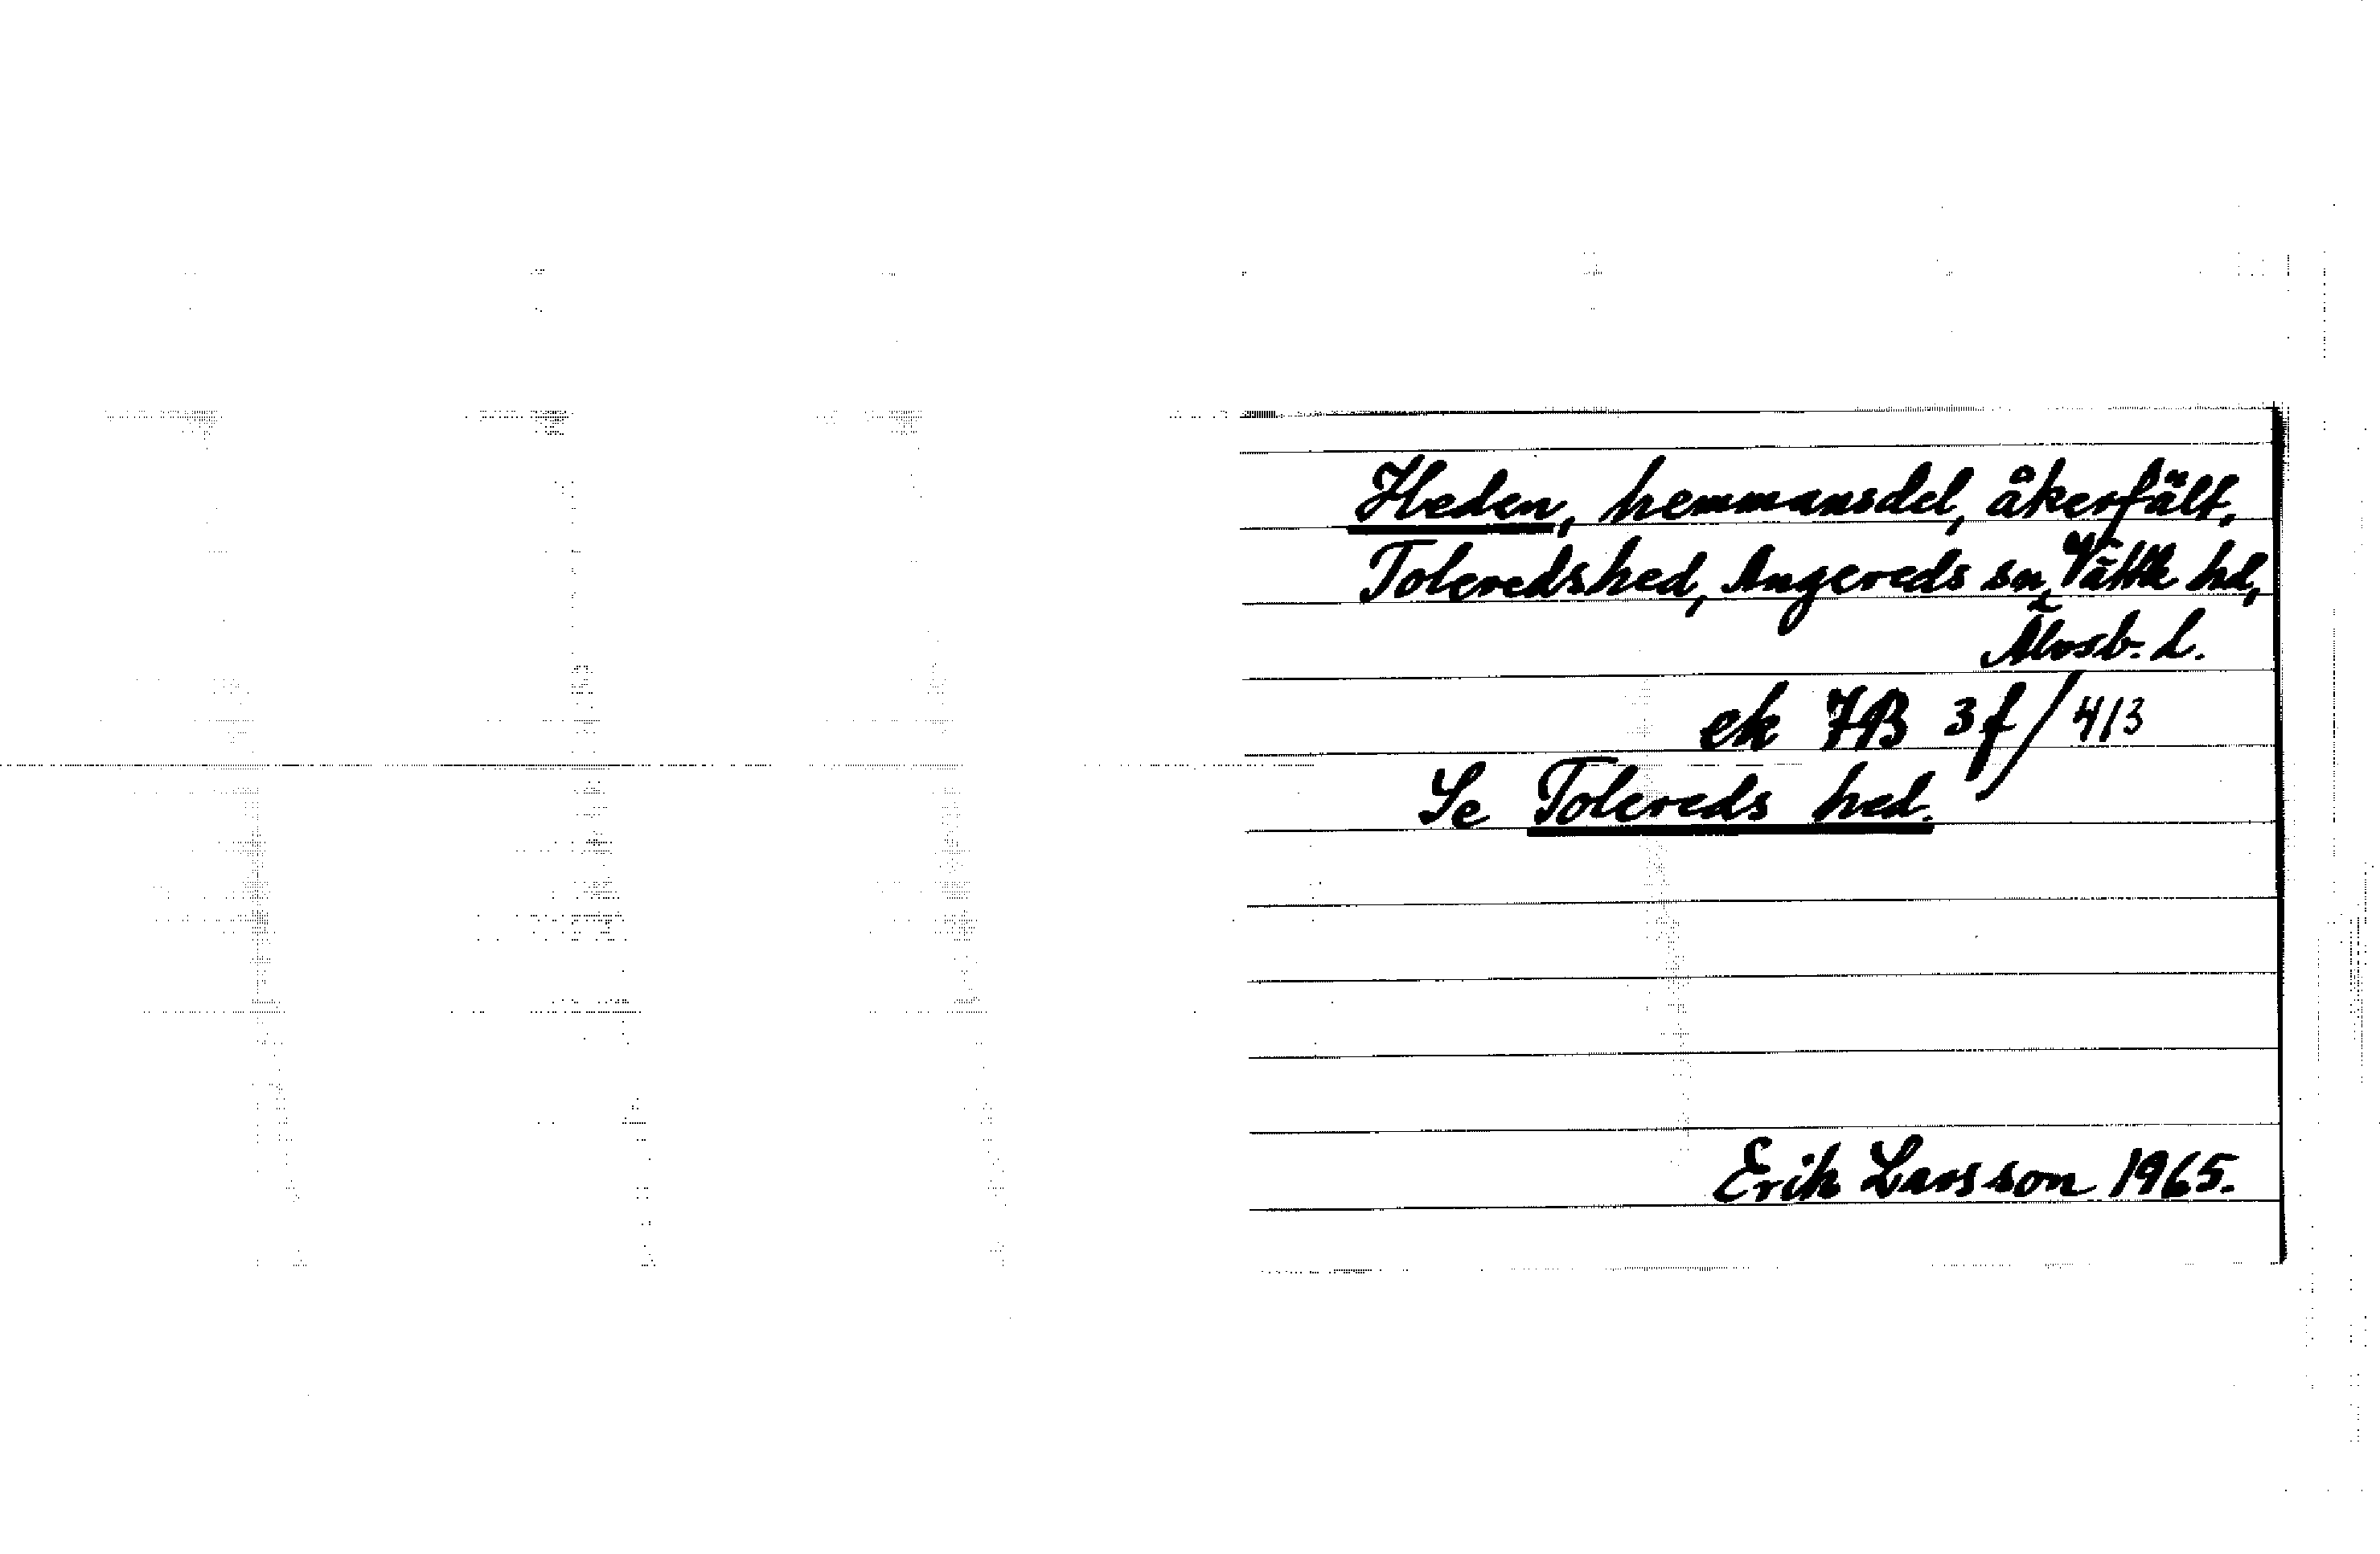 Heden, hemmansdel, åkerfält,
Toleredshed, Angereds sn, Vättle hd,
Älvsb. L.
ek 7B 3f/413
Se Tolereds hed.
Erik Larsson 1965.